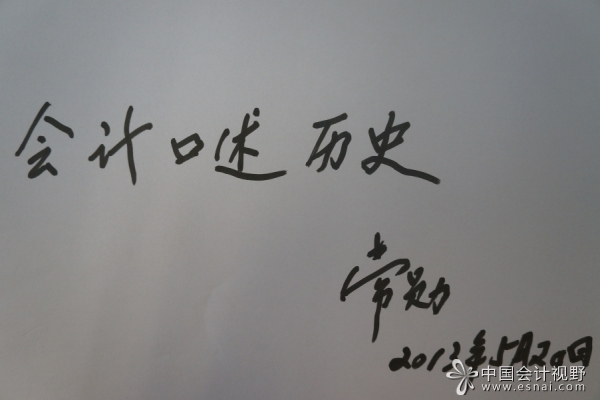 会计口述历史
常勋
2013年5月20日
中国会计视野
www.esnai.com